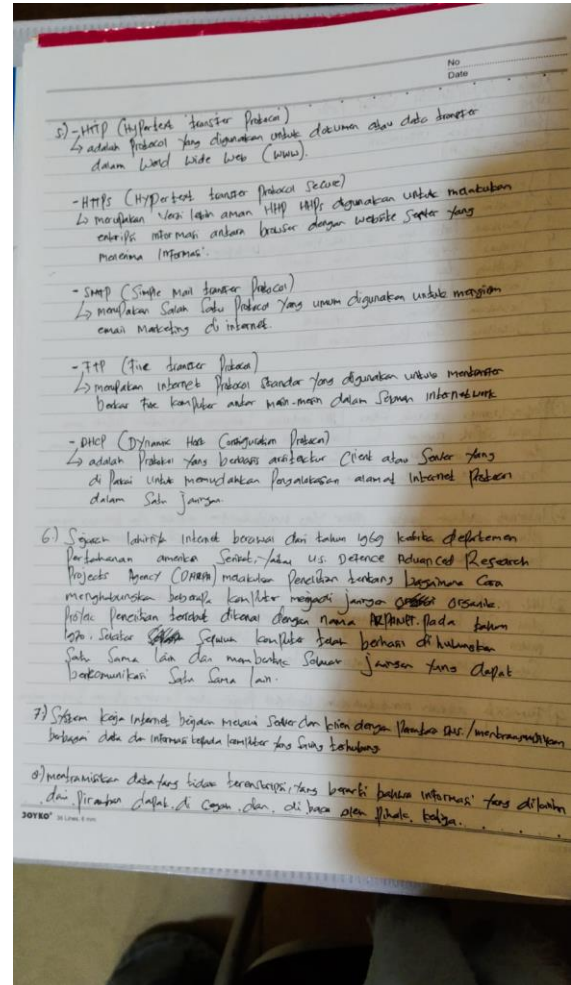 No
Date
5.) - HTTP (Hypertext transfer Protocol)
↳ adalah Protocol yang digunakan untuk dokumen atau data transfer
dalam World Wide Web (WWW).
- HTTPs (Hypertext transfer Protocol Secure)
↳ merupakan versi lebih aman HTTP HTTPs digunakan untuk melakukan
enkripsi informasi antara browser dengan website Server yang
menerima informasi.
- SMTP (Simple Mail transfer Protocol)
↳ merupakan Salah Satu Protocol yang umum digunakan untuk mengirim
email Marketing di internet.
- FTP (File transfer Protocol)
↳ merupakan internet Protocol Standar yang digunakan untuk mentransfer
berkas File komputer antar mesin-mesin dalam Sebuah internetwork
- DHCP (Dynamic Host Configuration Protocol)
↳ adalah Protokol yang berbasis arsitektur Client atau Server yang
di Pakai untuk memudahkan Pengalokasian alamat Internet Protocol
dalam Satu jaringan.
6.) Sejarah lahirnya internet berawal dari tahun 1969 ketika departemen
Pertahanan amerika Serikat, yaitu U.S. Defence Advanced Research
Projects Agency (DARPA) melakukan Penelitian tentang bagaimana Cara
menghubungkan beberapa komputer menjadi jaringan organik.
Proyek Penelitian tersebut dikenal dengan nama ARPANET. Pada tahun
1970. Sekitar Sepuluh komputer telah berhasil di hubungkan
Satu Sama lain dan membentuk Sebuah jaringan yang dapat
berkomunikasi Satu Sama lain.
7.) System kerja internet berjalan melalui Server dan klien dengan
berbagai data dan informasi kepada komputer yang Saling terhubung
8.) mentransmisikan data yang tidak terenkripsi, yang berarti bahwa informasi yang dikirim
dari Piramban dapat di cegah dan di baca oleh Pihak ketiga.
JOYKO 36 Lines, 6 mm